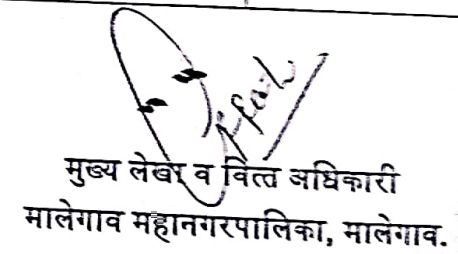 मुख्य लेखा व वित्त अधिकारी
मालेगाव महानगरपालिका, मालेगाव.